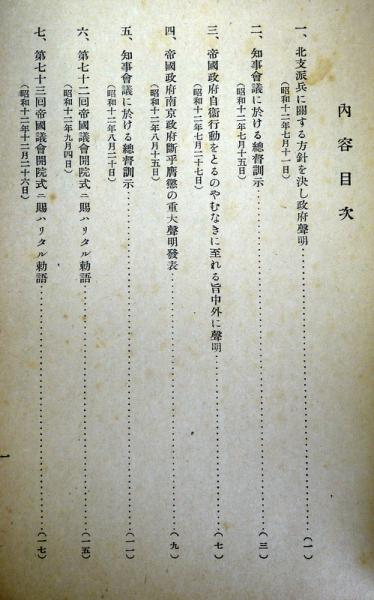 內容目次
一、北支派兵に關する方針を決し政府聲明……………………(一)
(昭和十二年七月十一日)
二、知事會議に於ける總督訓示……………………(三)
(昭和十二年七月十五日)
三、帝國政府自衞行動をとるのやむなきに至れる旨中外に聲明……………………(七)
(昭和十二年七月二十七日)
四、帝國政府南京政府に斷乎膺懲の重大聲明發表……………………(九)
(昭和十二年八月十五日)
五、知事會議に於ける總督訓示……………………(一一)
(昭和十二年八月二十日)
六、第七十二回帝國議會開院式ニ賜ハリタル勅語……………………(一五)
(昭和十二年九月四日)
七、第七十三回帝國議會開院式ニ賜ハリタル勅語……………………(一七)
(昭和十二年十二月二十六日)
一